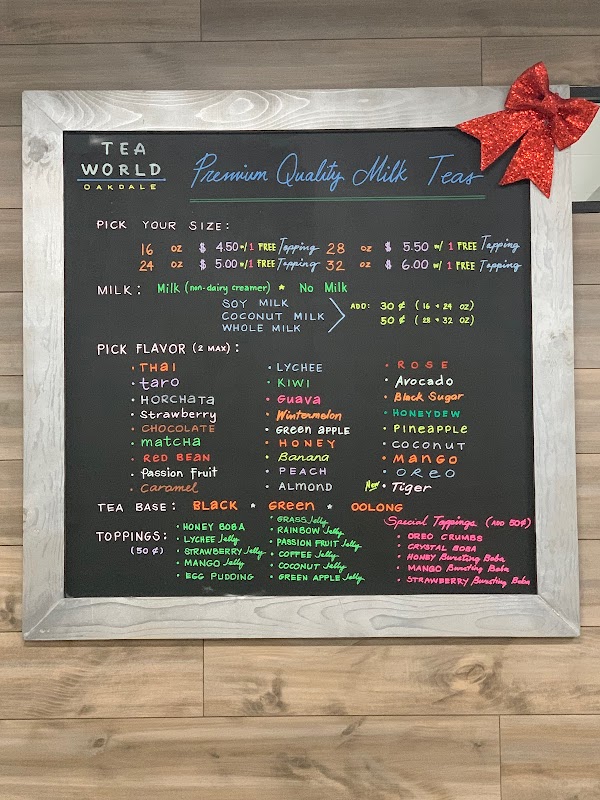 TEA
WORLD
OAKDALE
Premium Quality Milk Teas
PICK YOUR SIZE:
16 oz $ 4.50 w/ 1 FREE Topping 28 oz $ 5.50 w/ 1 FREE Topping
24 oz $ 5.00 w/ 1 FREE Topping 32 oz $ 6.00 w/ 1 FREE Topping
MILK: Milk (non-dairy creamer) * No Milk
SOY MILK
COCONUT MILK
WHOLE MILK
ADD: 30 ¢ (16 + 24 oz)
50 ¢ (28 + 32 oz)
PICK FLAVOR (2 MAX):
• THAI
• taro
• HORCHATA
• Strawberry
• CHOCOLATE
• matcha
• RED BEAN
• Passion fruit
• Caramel
• LYCHEE
• KIWI
• Guava
• Wintermelon
• Green APPLE
• HONEY
• Banana
• PEACH
• ALMOND
• ROSE
• Avocado
• Black Sugar
• HONEYDEW
• PINEAPPLE
• COCONUT
• MANGO
• OREO
New • Tiger
TEA BASE: BLACK * Green * OOLONG
TOPPINGS:
(50 ¢)
• HONEY BOBA
• LYCHEE Jelly
• STRAWBERRY Jelly
• MANGO Jelly
• EGG PUDDING
• GRASS Jelly
• RAINBOW Jelly
• PASSION FRUIT Jelly
• COFFEE Jelly
• COCONUT Jelly
• GREEN APPLE Jelly
Special Toppings (ADD 50¢)
• OREO CRUMBS
• CRYSTAL BOBA
• HONEY Bursting Boba
• MANGO Bursting Boba
• STRAWBERRY Bursting Boba